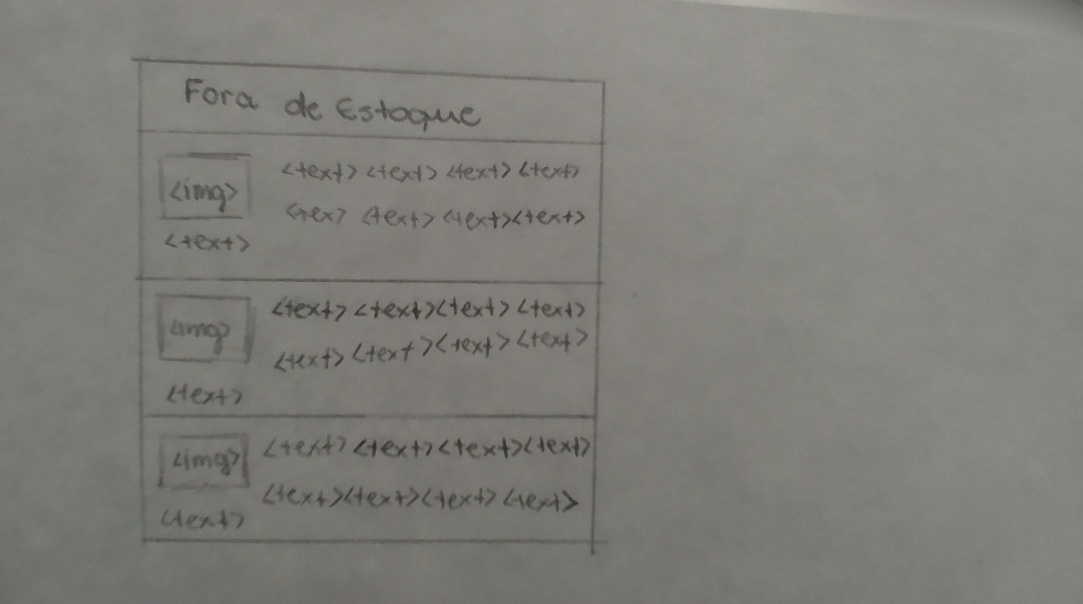 Fora de Estoque
<text> <text> <text> <text>
<img>
<tex> <text> <text> <text>
<text>
<text> <text> <text> <text>
<img>
<text> <text> <text> <text>
<text>
<text> <text> <text> <text>
<img>
<text> <text> <text> <text>
<text>